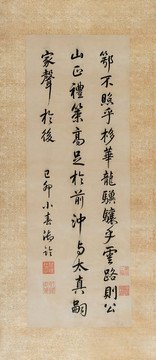 鄂不照乎杉華龍驤驤乎雲路則公
山正禮策高足於前沖与太真嗣
家聲於後
己卯小春